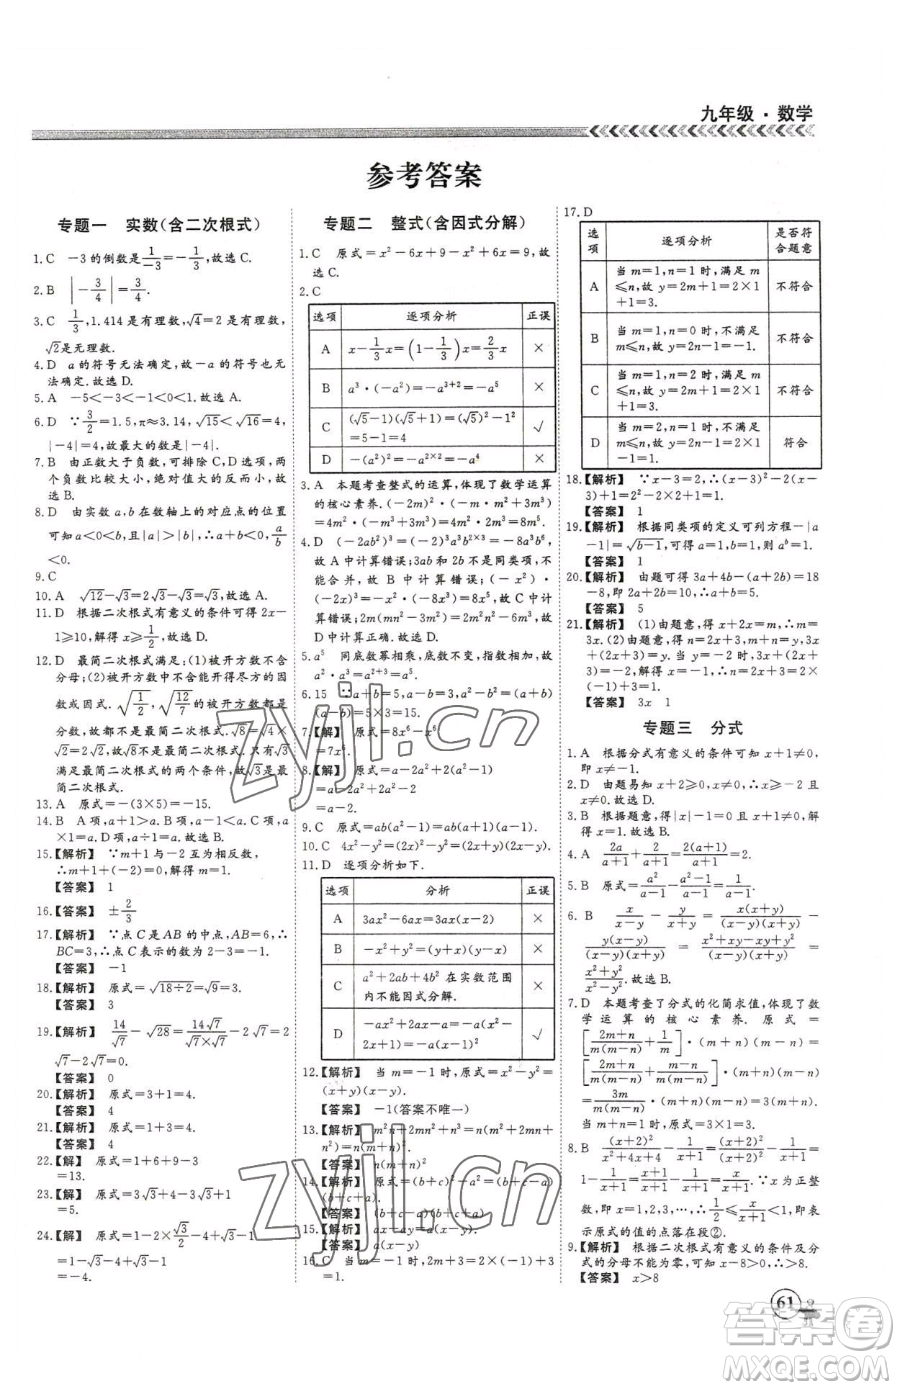 九年级·数学
参考答案
专题一 实数(含二次根式)
1.C -3的倒数是1/(-3)=-1/3,故选C.
2.B |-3/4|=3/4.
3.C 1/3,1.414是有理数,√4=2是有理数,
√2是无理数.
4.D a的符号无法确定,故-a的符号也无
法确定.故选D.
5.A -5<-3<-1<0<1.故选A.
6.D ∵3/2=1.5,π≈3.14,√15<√16=4,
|-4|=4,故最大的数是|-4|.
7.B 由正数大于负数,可排除C、D选项,两
个负数比较大小,绝对值大的反而小,故
选B.
8.D 由实数a,b在数轴上的对应点的位置
可知,a<0<b,且|a|>|b|,∴a+b<0,a/b
<0.
9.C
10.A √12-√3=2√3-√3=√3,故选A.
11.D 根据二次根式有意义的条件可得2x-
1≥0,解得x≥1/2,故选D.
12.D 最简二次根式满足:(1)被开方数不含
分母;(2)被开方数中不含能开得尽方的因
数或因式.√(1/2),√(12/7)的被开方数中含有
分母,故不是最简二次根式;√8=√4×√2
=2√2,故√8不是最简二次根式.√3满足
最简二次根式的两个条件,故√3是最
简二次根式.
13.A 原式=-(3×5)=-15.
14.B A项,a+1>a.B项,a×1=a.C项,a
×1=a.D项,a÷1=a.故选B.
15.【解析】 ∵m+1与-2互为相反数,
∴m+1+(-2)=0,解得m=1.
【答案】 1
16.【答案】 ±2/3
17.【解析】 ∵点C是AB的中点,AB=6,∴
BC=3,∴点C表示的数为2-3=-1.
【答案】 -1
18.【解析】 原式=√(18÷2)=√9=3.
【答案】 3
19.【解析】 14/√7-√28=14√7/(√7×√7)-2√7=2
√7-2√7=0.
【答案】 0
20.【解析】 原式=3+1=4.
【答案】 4
21.【解析】 原式=1+3=4.
【答案】 4
22.【解】 原式=1+6+9-3
=13.
23.【解】 原式=3√3+4-3√3+1
=5.
24.【解】 原式=1-2×√3/2-4+√3
=1-√3-4+√3
=-3.
专题二 整式(含因式分解)
1.C 原式=x²-6x+9-x²+6x=9,故
选C.
2.C
选项 逐项分析 正误
A x-1/3x=(1-1/3)x=2/3x ×
B a³·(-a²)=-a³⁺²=-a⁵ ×
C (√5-1)(√5+1)=(√5)²-1²
=5-1=4 √
D -(a²)²=-a²ˣ²=-a⁴ ×
3.A 本题考查整式的运算,体现了数学运算
的核心素养.(-2m)²·(-m·m²+3m³)
=4m²·(-m³+3m³)=4m²·2m³=8m⁵.
4.D (-2a²b³)³=(-2)³(a²)³(b³)³=-8a⁶b⁹,
故A中计算错误;3ab和2b不是同类项,不
能合并,故B中计算错误;(-x²)·
(-2x)³=(-x²)·(-8x³)=8x⁵,故C中计
算错误;2m(mn²-3m²)=2m²n²-6m³,故
D中计算正确,故选D.
5.a⁵ 同底数幂相乘,底数不变,指数相加.故
a²·a³=a²⁺³=a⁵.
6.15 ∵a+b=5,a-b=3,a²-b²=(a+b)
(a-b)=5×3=15.
7.【解】 原式=8x⁶-x⁶
=7x⁶.
8.【解】 原式=a-2a²+2(a²-1)
=a-2a²+2a²-2
=a-2.
9.C 原式=ab(a²-1)=ab(a+1)(a-1).
10.C 4x²-y²=(2x)²-y²=(2x+y)(2x-y).
11.D 逐项分析如下.
选项 分析 正误
A 3ax²-6ax=3ax(x-2) ×
B -x²+y²=(y+x)(y-x) ×
C a²+2ab+4b²在实数范围
内不能因式分解. ×
D -ax²+2ax-a=-a(x²-
2x+1)=-a(x-1)² √
12.【解析】 当m=-1时,原式=x²-y²=
(x+y)(x-y).
【答案】 -1(答案不唯一)
13.【解析】 m²n+2mn²+n³=n(m²+2mn+
n²)=n(m+n)²
【答案】 n(m+n)²
14.【解析】 原式=(b+c)²-a²=(b+c+a)·
(b+c-a).
【答案】 (b+c+a)(b+c-a)
15.【解析】 ax-ay=a(x-y).
【答案】 a(x-y)
16.C 当m=-1时,2m+3=2×(-1)+3
=1.
17.D
选项 逐项分析 是否符合题意
A 当m=1,n=1时,满足m
≤n,故y=2m+1=2×1
+1=3. 不符合
B 当m=1,n=0时,不满足
m≤n,故y=2n-1=-1. 不符合
C 当m=1,n=2时,满足m
≤n,故y=2m+1=2×1
+1=3. 不符合
D 当m=2,n=1时,不满足
m≤n,故y=2n-1=1. 符合
18.【解析】 ∵x-3=2,∴(x-3)²-2(x-
3)+1=2²-2×2+1=1.
【答案】 1
19.【解析】 根据同类项的定义可列方程-|a
-1|=√(b-1),可得a=b=1.
【答案】 1
20.【解析】 由题可得3a+4b-(2a+5b)=18
-8,即2a-2b=10,∴a-b=5.
【答案】 5
21.【解析】 (1)由题意,得x+2x=m,∴m=
3x.(2)由题意,得n=2x+3,m+n=y,∴
(2x+3)=y.当y=-2时,3x+
(2x+3)=-2,解得x=-1,∴n=2x+3=2×
(-1)+3=1.
【答案】 3x 1
专题三 分式
1.A 根据分式有意义的条件可知x+1≠0,
即x≠-1.故选A.
2.D 由题易知x+2≥0,∴x≥-2且
x≠0.故选D.
3.B 根据题意,得|x|-1=0,且x-1≠0,解
得x=-1.故选B.
4.A 2a/(a+1)+2/(a+1)=2(a+1)/(a+1)=2.
5.B 原式=a²/(a-1)-(a²-1)/(a-1)=1/(a-1).
6.B x/(x-y)-y/(x+y)=x(x+y)/((x-y)(x+y))-
y(x-y)/((x-y)(x+y))=(x²+xy-xy+y²)/((x-y)(x+y))=
(x²+y²)/(x²-y²).故选B.
7.D 本题考查了分式的化简求值,体现了数
学运算的核心素养.原式=
[2m+n/(m(m-n))+1/m]·(m+n)(m-n)=
[2m+n/(m(m-n))+m-n/(m(m-n))]·(m+n)(m-n)=
3m/(m(m-n))·(m+n)(m-n)=3(m+n),∴
当m+n=1时,原式=3.
8.B (x+2)²/(x²+4x+4)-1/(x+1)=(x+2)²/(x+2)²-1/(x+1)=
1-1/(x+1)=(x+1-1)/(x+1)=x/(x+1).∵x为正整
数,即x=1,2,3,…,∴1/2≤x/(x+1)<1,故
表示原式的值的点落在段②.
9.【解析】 根据二次根式有意义的条件及分
式的分母不能为零,可知x-8>0,∴x>8.
【答案】 x>8
61
zyjl.cn
zyjl.cn
答案圈
MXQE.COM